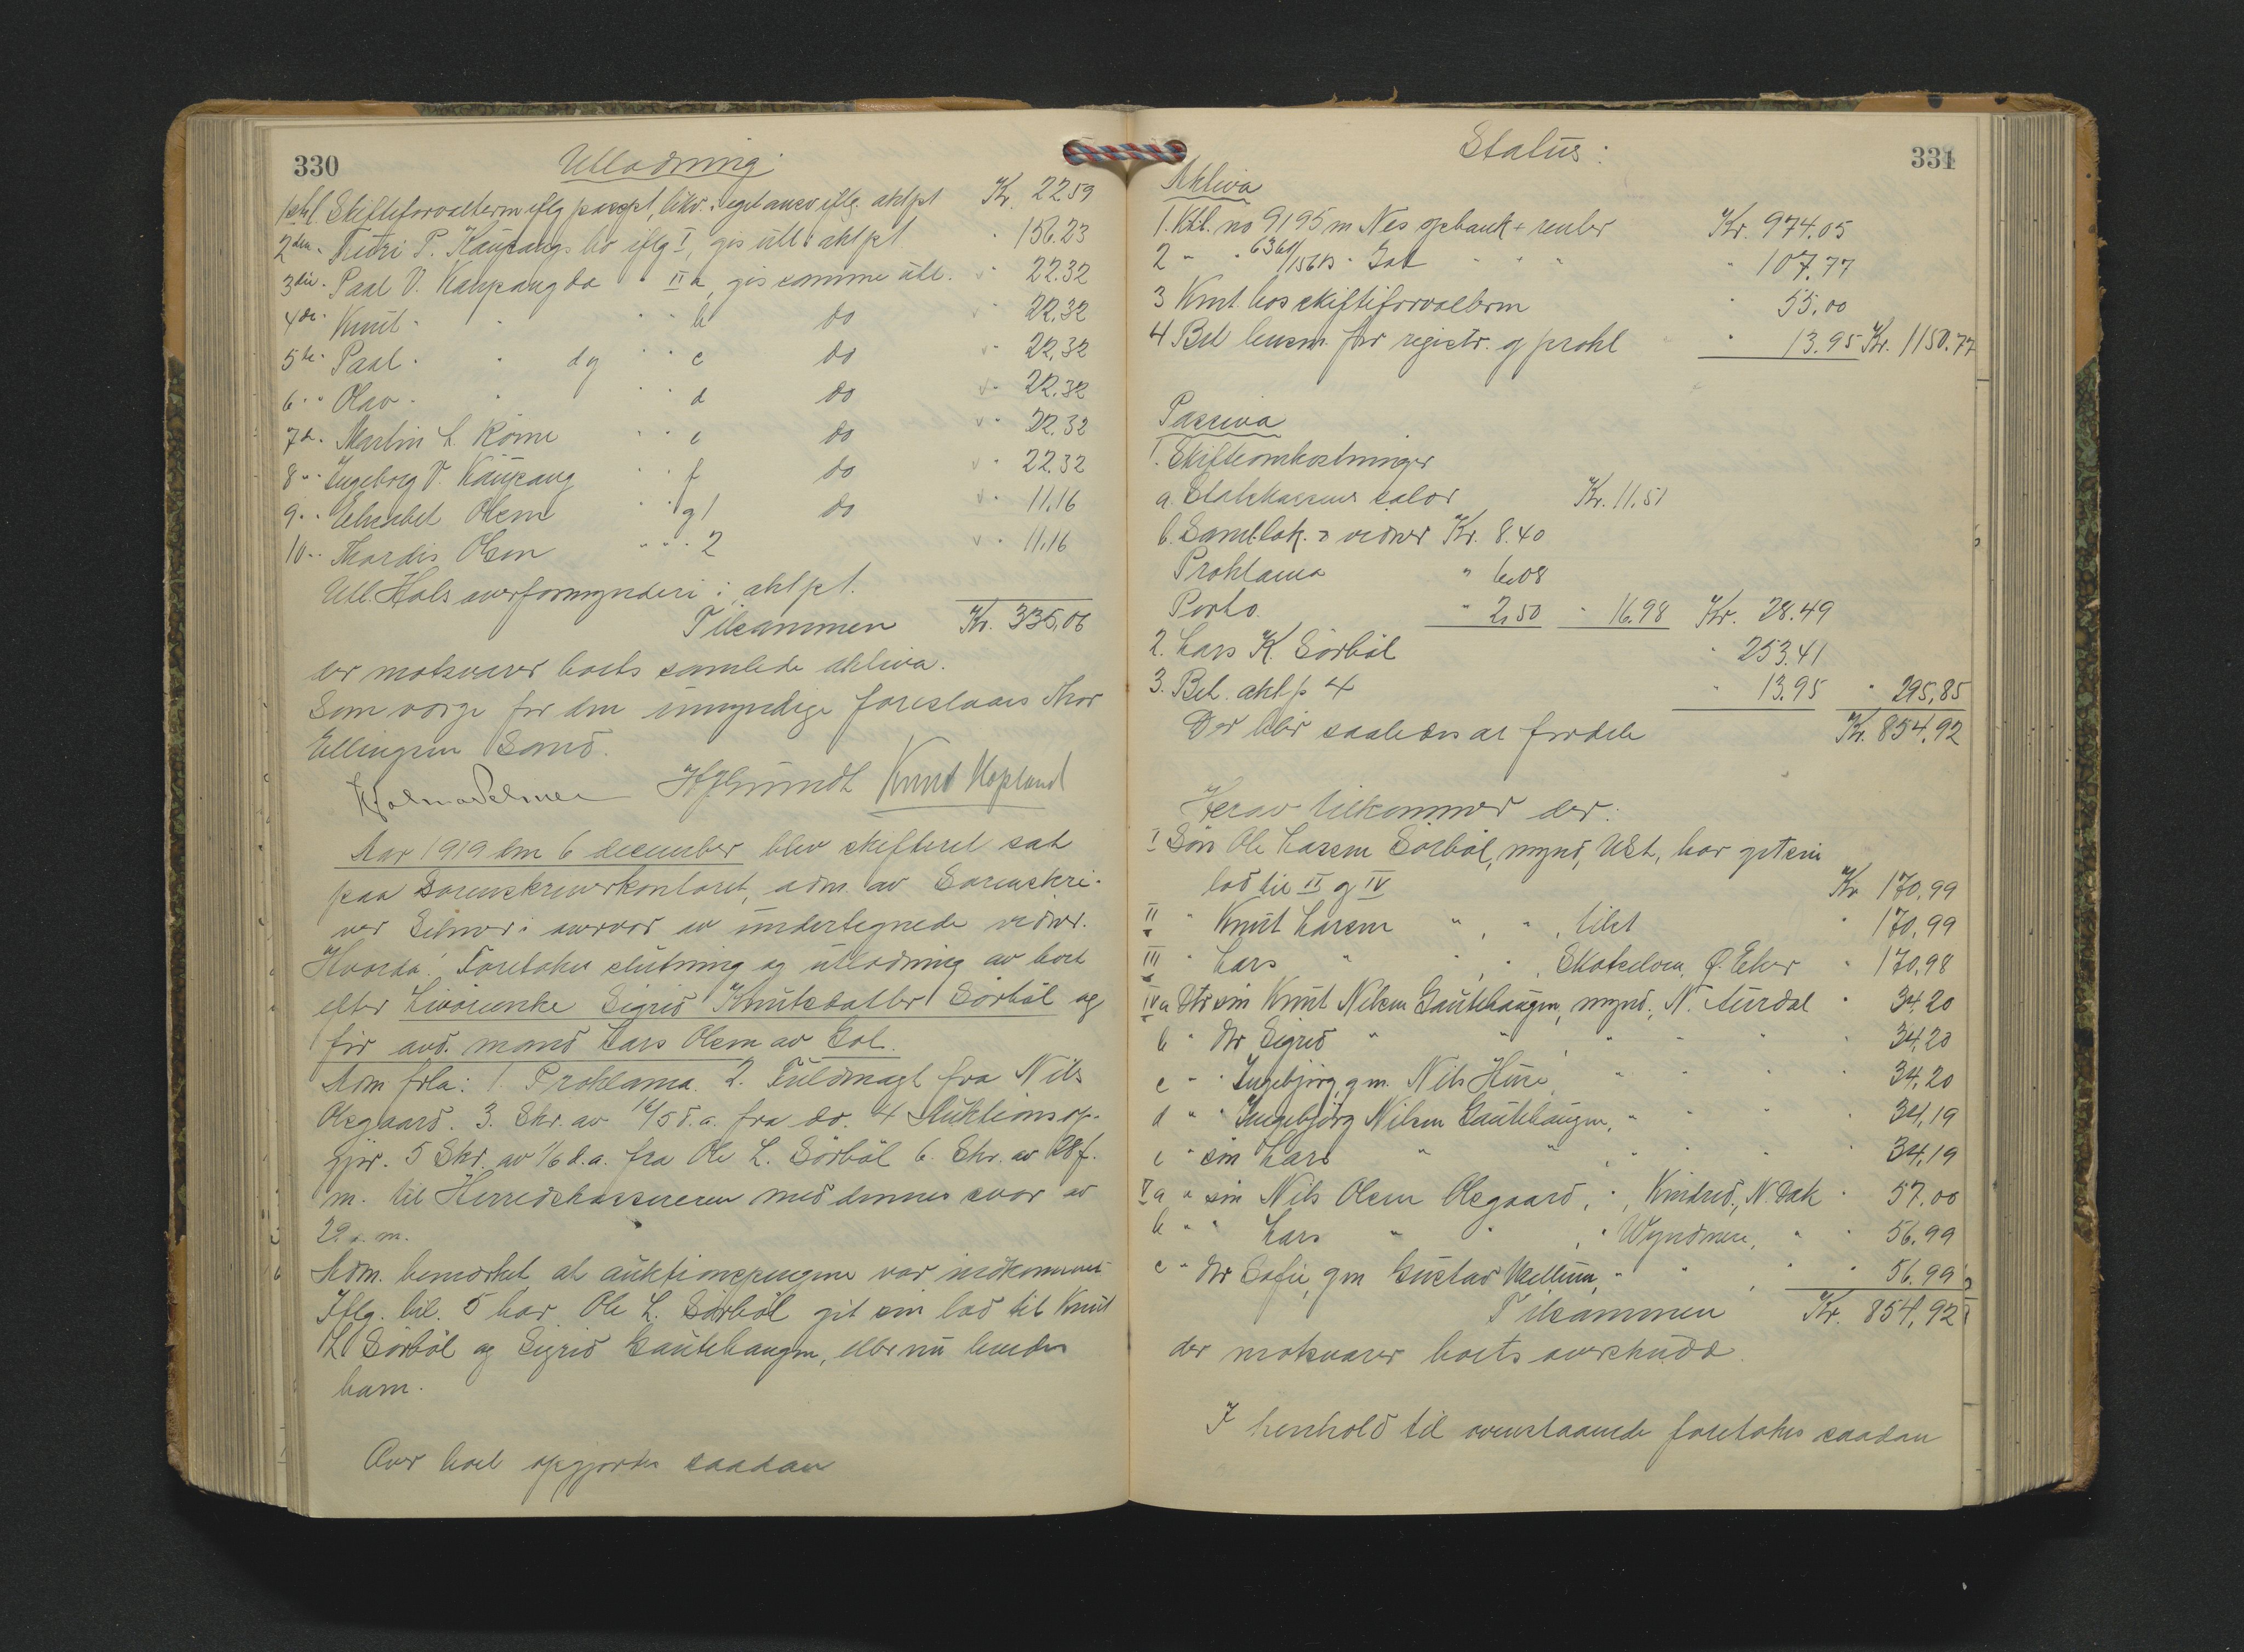 330
Utlodning
1ste l. Skifteforvalteren iflg passpt, likv. i eget ansv iflg. aktpt Kr. 22.59
2den " P. Kaupangs bo iflg I, gis utl. i aktpt. " 156.23
3die " Paal V. Kaupang do " II a, gis samme utl. " 22.32
4de " Knut " " " " b do " 22.32
5te " Paal " " dy " " c do " 22.32
6 " " Olav " " " " d do " 22.32
7de " Martin L. Röine " " e do " 22.32
8 " " Ingeborg V. Kaupang " " f do " 22.32
9 " " Elisabet Olsen " " g 1 do " 11.16
10 " " Thordis Olsen " " " 2 " 11.16
Utl. Hols overformynderi i aktpt.
Tilsammen Kr. 335,06
der motsvarer boets samlede aktiva.
Som værge for den umyndige foreslaaes Thor
Ellingsen Sand.
Knut Kopland
Aar 1919 den 6 december blev skifteret sat
paa Sorenskriverkontoret, adm. av Sorenskri-
ver Selmer i overvær av undertegnede vidner.
Hvorda: Foretokes slutning og utlodning av boet
efter Livörenke Sigrid Knutsdatter Sörböl og
før avd. mand Lars Olsen av Gol.
Adm frla: 1. Proklama. 2. Fuldmagt fra Nils
Olsgaard. 3. Skr. av 16/5 d.a. fra do. 4 Auktionsop-
gjør. 5 Skr. av 1/6 d.a. fra Ole L. Sörböl 6. Skr. av 28 f.
m. til Herredskassereren med dennes svar av
29. s. m.
Adm. bemerket at auktionspengene var indkommet
Iflg. bil. 5 har Ole L. Sörböl git sin lod til Knut
L. Sörböl og Sigrid Gautehaugen, eller nu hendes
barn.
Over boet opgjordes saadan
331
Status:
Aktiva
1. Ktb. no 9195 m Nes spbank + renter Kr. 974.05
2 " " 6361/156 B " Gol " " " " 107.77
3 Knt. hos skifteforvalteren " 55.00
4 Bet lensm. for registr. og prokl " 13.95 Kr. 1150.77
Passiva
1. Skifteomkostninger
a. Statskassens salær Kr. 11.51
b. Saml. lok. & vidner Kr. 8.40
Proklama " 6.08
Porto. " 2,50 " 16.98 Kr. 28.49
2. Lars K. Sörböl " 253.41
3. Bet. aktp 4 " 13.95 " 295,85
Der blir saaledes at fordele Kr. 854,92
Herav tilkommer der:
I Søn Ole Larsen Sörböl, mynd, USt, har git sin
lod til II og IV Kr 170,99
II " Knut Larsen " , " , tilst " 170,99
III " Lars " " , " , Skotselven, Ø. Eker " 170,98
IV a Dtr søn Knut Nilsen Gautehaugen, mynd., N. Aurdal " 34,20
b " dtr Sigrid " " " " " " 34,20
c " " Ingebjørg, gm. Nils " " " " 34,20
d " " Ingebjörg Nilsen Gautehaugen, " " " " 34,19
e " søn Lars " " " " " 34,19
V a " søn Nils Olsen Olsgaard, " , Kindred, N. Dak " 57,00
b " " Lars " " , " Wyndmere, " " 56,99
c " dtr Sofie, gm Gustav " " " " 56,99
Tilsammen Kr. 854,92
der motsvarer boets overskudd.
I henhold til ovenstaaende foretokes saadan